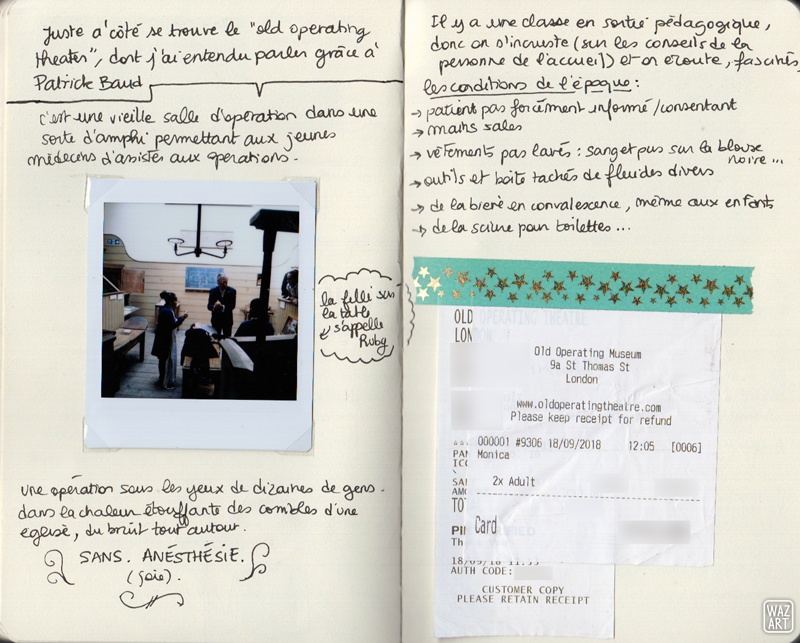 Juste à côté se trouve le "old operating
theater", dont j'ai entendu parler grâce à
Patrick Baud
c'est une vieille salle d'opération dans une
sorte d'amphi permettant aux jeunes
médecins d'assister aux opérations.
la fille sur
la table
s'appelle
Ruby
une opération sous les yeux de dizaines de gens.
dans la chaleur étouffante des combles d'une
eglise, du bruit tout autour.
SANS. ANÉSTHÉSIE.
(joie).
Il y a une classe en sortie pédagogique,
donc on s'incruste (sur les conseils de la
personne de l'accueil) et on écoute, fascinés,
les conditions de l'époque :
→ patient pas forcément informé/consentant
→ mains sales
→ vêtements pas lavés : sang et pus sur la blouse
noire...
→ outils et boite tachés de fluides divers
→ de la bière en convalescence, même aux enfants
→ de la sciure pour toilettes...
OLD OPERATING THEATRE
LON
Old Operating Museum
9a St Thomas St
London
www.oldoperatingtheatre.com
Please keep receipt for refund
000001 #9306 18/09/2018 12:05 [0006]
Monica
PAN
ICC
2x Adult
SAL
AMO
TO
Card
PI
Th
AUTH CODE:
CUSTOMER COPY
PLEASE RETAIN RECEIPT
WAZ
ART